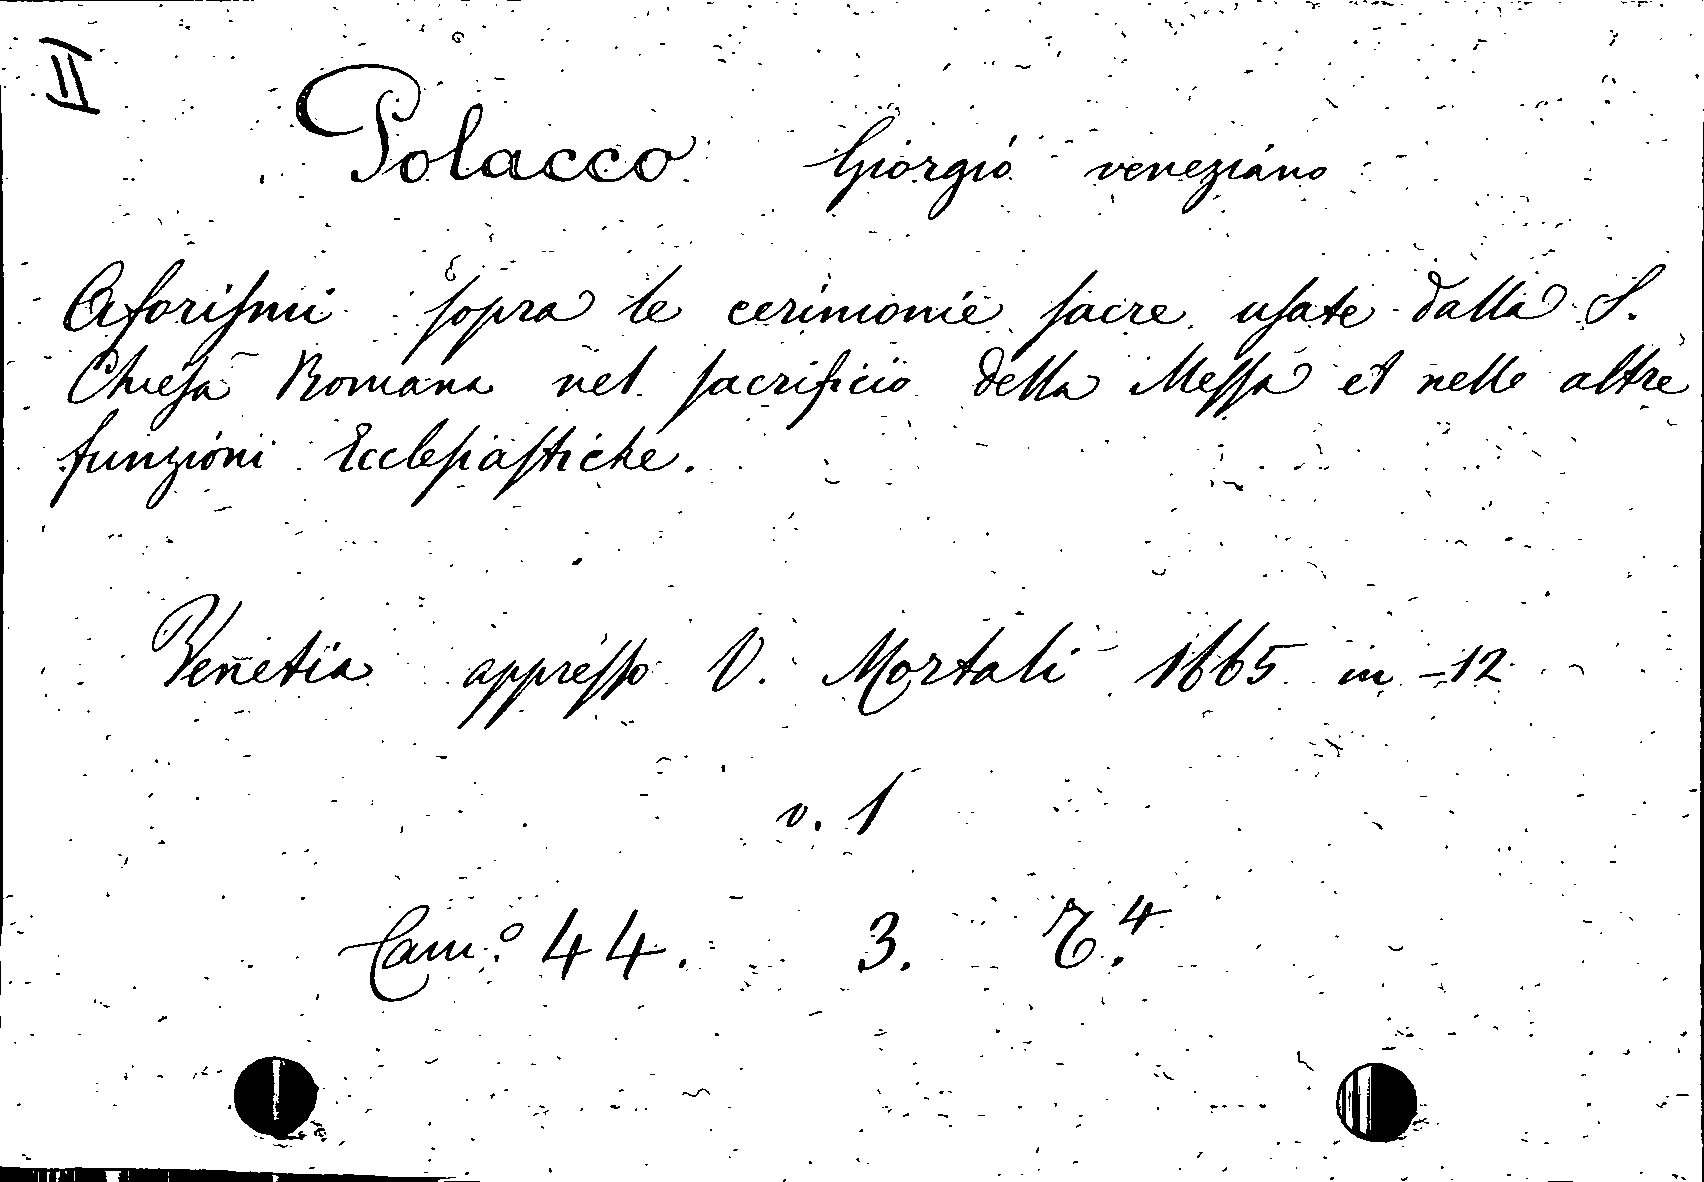 II
Polacco Giorgio veneziano
Aforiſmi ſopra le cerimonie ſacre uſate dalla S.
Chieſa Romana nel ſacrificio della Meſſa et nelle altre
funzioni Eccleſiaſtiche.
Venetia appreſſo V. Mortali 1665 in-12
v. 1
Cam.º 44. 3. T.4